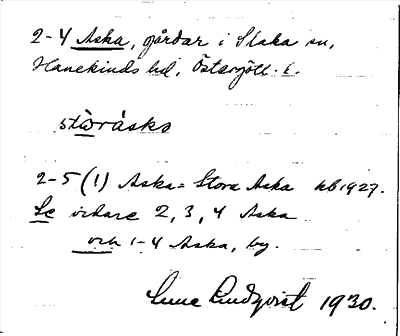 2-4 Aska, gårdar i Slaka sn,
Hanekinds hd, Östergötl. l.
stòråska
2-5 (1) Aska = Stora Aska kb 1927.
Se vidare 2, 3, 4 Aska
och 1-4 Aska, by.
Sune Lindqvist 1930.